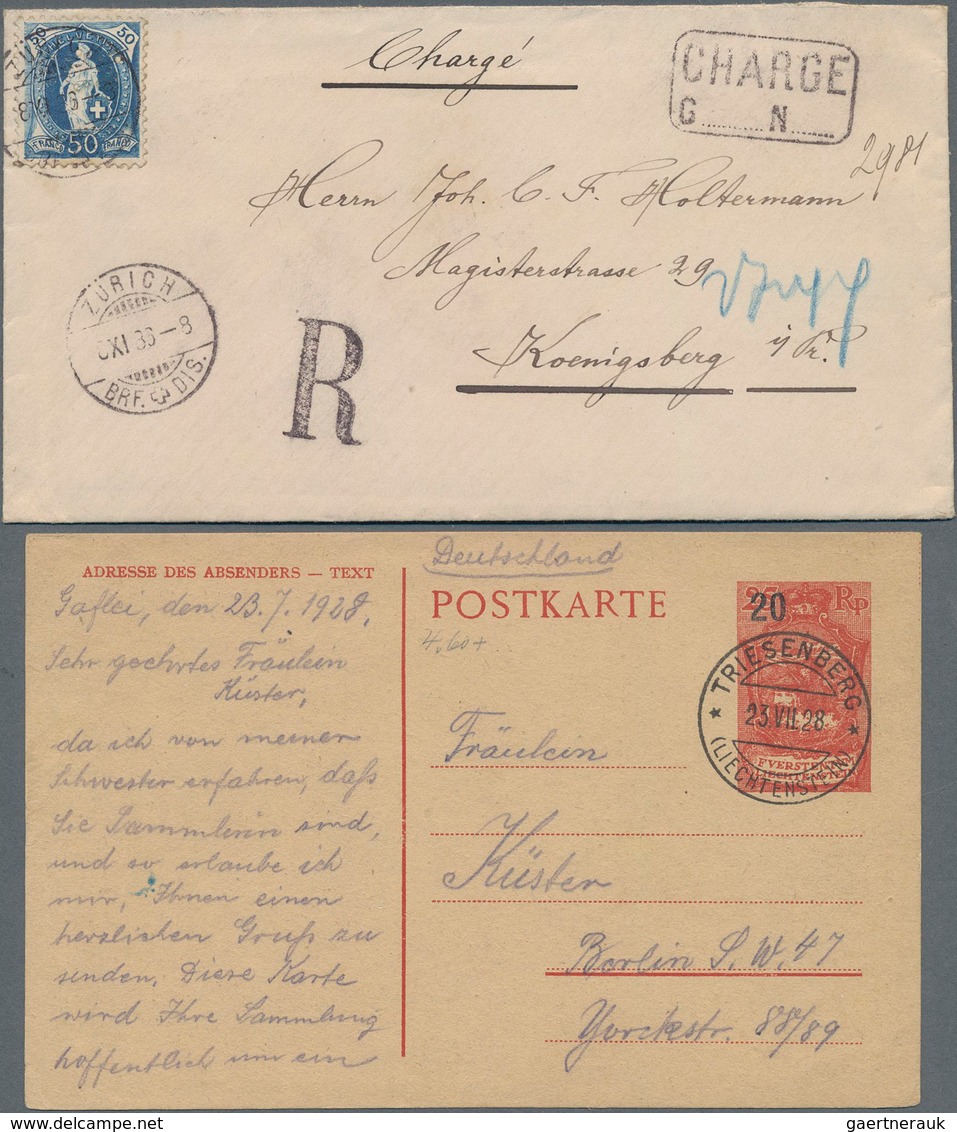 50 HELVETIA 50
FRANCO 50 FRANCO
Chargé
CHARGE
G N
2981
Herrn Joh. C. F. Holtermann
Magisterstrasse 29
Koenigsberg i/Pr.
ZÜRICH
XI 86-8
BRF. DIS.
R
ADRESSE DES ABSENDERS — TEXT
Gaflei, den 23.7.1928.
Sehr geehrtes Fräulein
Küster,
da ich von meiner
Schwester erfahren, daß
Sie Sammlerin sind,
und so erlaube ich
mir, Ihnen einen
herzlichen Gruß zu
senden. Diese Karte
wird Ihre Sammlung
hoffentlich um ein
Deutschland
POSTKARTE
4.60+
25 Rp
20
TRIESENBERG
23.VII.28
(LIECHTENSTEIN)
Fräulein
Küster
Berlin S.W. 47
Yorckstr. 88/89
delcampe.net
gaertnerauk